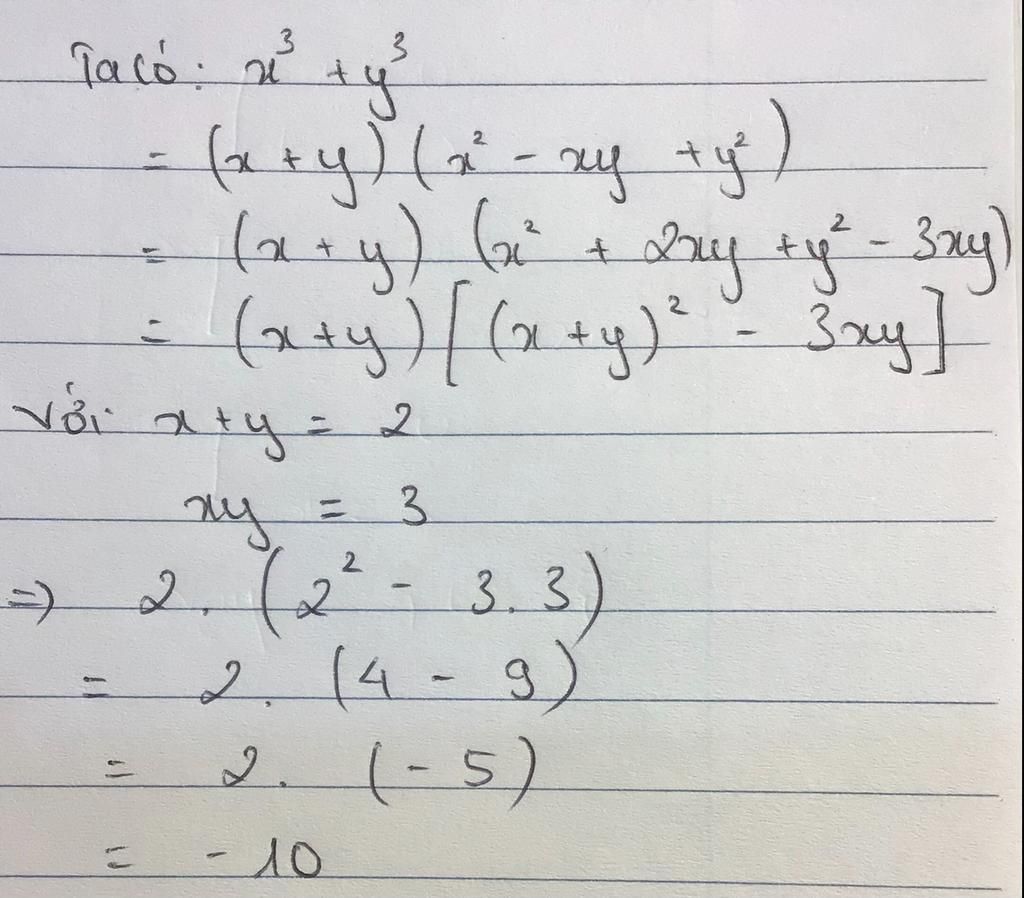 Ta có: x³ + y³
= (x + y) (x² - xy + y²)
= (x + y) (x² + 2xy + y² - 3xy)
= (x + y) [(x + y)² - 3xy]
Với x + y = 2
xy = 3
=> 2. (2² - 3.3)
= 2. (4 - 9)
= 2. (- 5)
= - 10